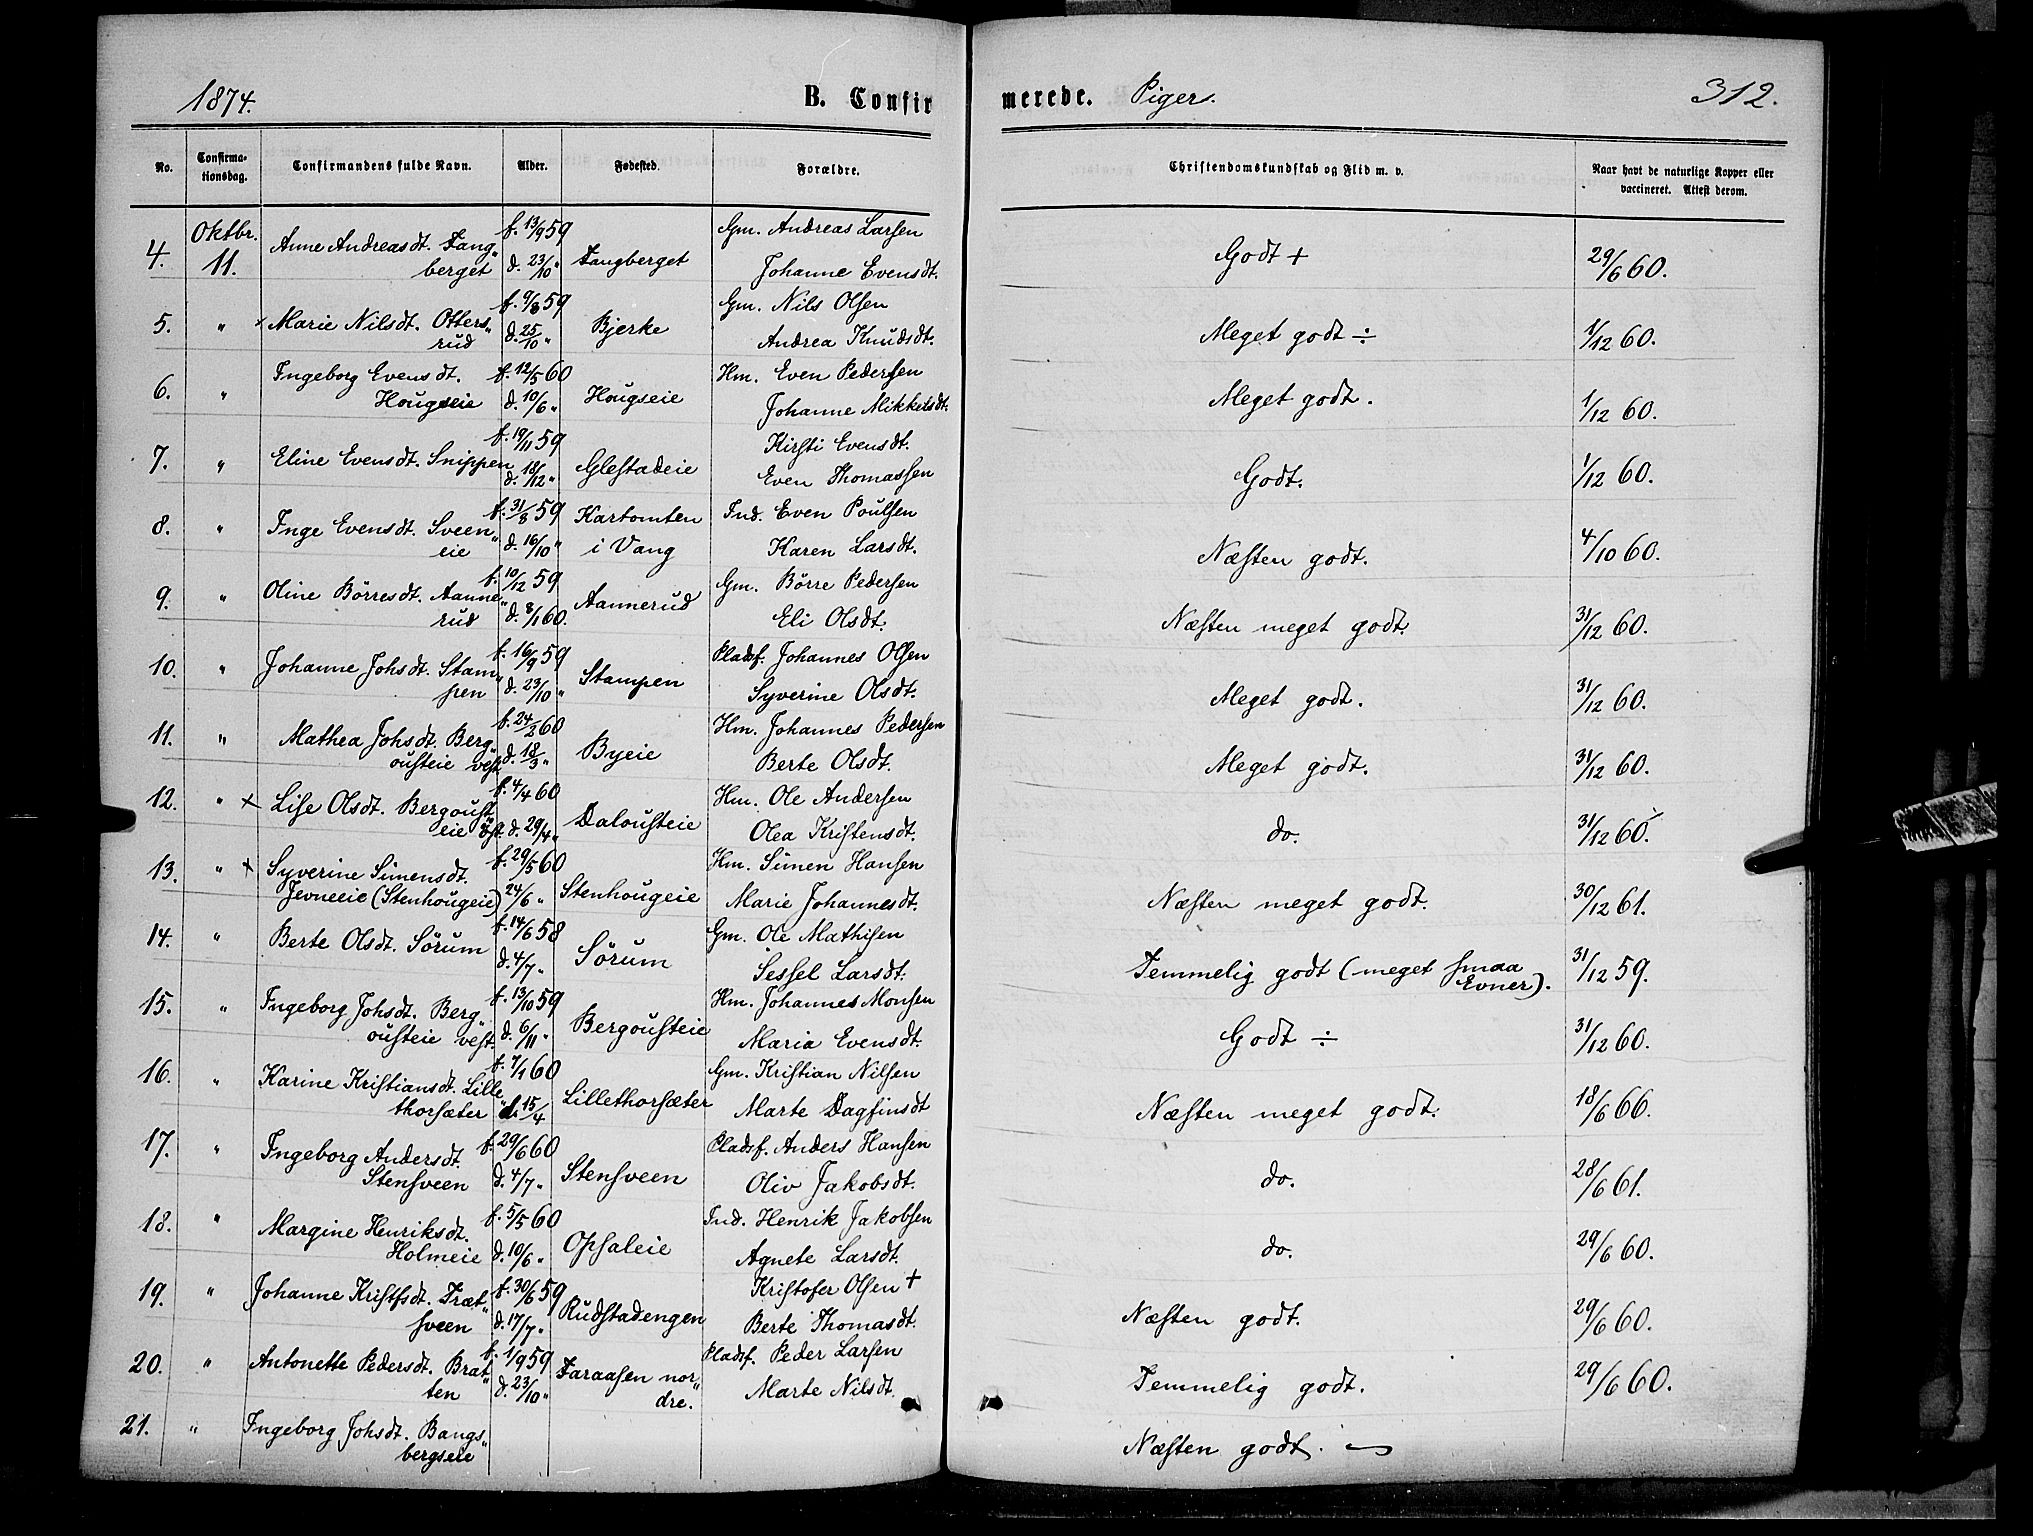 1874.
B. Confirmerede.
Piger.
312.
No.
Confirmationsdag.
Confirmandens fulde Navn.
Alder.
Fødested.
Forældre.
Christendomskundskab og Flid m. v.
Naar havt de naturlige Kopper eller vaccineret. Attest derom.
4. Oktbr. 11. Anne Andreasdt. Fangberget f. 13/9 59 d. 23/10 " Fangberget Gm. Andreas Larsen Johanne Evensdt. Godt + 29/6 60.
5. " Marie Nilsdt. Ottersrud f. 9/8 59 d. 25/10 " Bjerke Gm. Nils Olsen Andrea Knudsdt. Meget godt ÷ 1/12 60.
6. " Ingeborg Evensdt. Hougseie f. 12/5 60 d. 10/6 " Hougseie Hm. Even Pedersen Johanne Mikkelsdt. Meget godt. 1/12 60.
7. " Eline Evensdt. Snippen f. 19/11 59 d. 18/12 " Glestadeie Kirsti Evensdt. Even Thomassen Godt. 1/12 60.
8. " Inge Evensdt. Sveeneie f. 31/8 59 d. 16/10 " Kartomten i Vang Ind. Even Poulsen Karen Larsdt. Næsten godt. 4/10 60.
9. " Oline Börresdt. Aannerud f. 10/12 59 d. 8/1 60. Aannerud Gm. Börre Pedersen Eli Olsdt. Næsten meget godt. 31/12 60.
10. " Johanne Johsdt. Stampen f. 16/9 59 d. 23/10 " Stampen Pladsf. Johannes Olsen Syverine Olsdt. Meget godt. 31/12 60.
11. " Mathea Johsdt. Bergousteie vest f. 24/2 60 d. 18/3 " Byeie Hm. Johannes Pedersen Berte Olsdt. Meget godt. 31/12 60.
12. " + Lise Olsdt. Bergousteie öst. f. 4/4 60 d. 29/4 " Dalousteie Hm. Ole Andersen Olea Kristensdt. do. 31/12 60.
13. " + Syverine Simensdt. Jevneeie (Stenhougeie) f. 29/5 60 24/6 " Stenhougeie Hm. Simen Hansen Marie Johannesdt. Næsten meget godt. 30/12 61.
14. " Berte Olsdt. Sörum f. 14/6 58 d. 4/7 " Sörum Gm. Ole Mathisen Sessel Larsdt. Temmelig godt (meget smaa Evner). 31/12 59.
15. " Ingeborg Johsdt. Bergousteie vest. f. 13/10 59 d. 6/11 " Bergousteie Hm. Johannes Monsen Maria Evensdt. Godt ÷ 31/12 60.
16. " Karine Kristiansdt. Lillethorsæter f. 7/1 60 d. 15/4 Lillethorsæter Gm. Kristian Nilsen Marte Dagfinsdt Næsten meget godt. 18/6 66.
17. " Ingeborg Andersdt. Stensveen f. 29/6 60 d. 4/7 " Stensveen Pladsf. Anders Hansen Oliv Jakobsdt. do. 28/6 61.
18. " Margine Henriksdt. Holmeie f. 5/5 60 d. 10/6 " Opsaleie Ind. Henrik Jakobsen Agnete Larsdt. do. 29/6 60.
19. " Johanne Kristfsdt. Trætsveen f. 30/6 59 d. 17/7 " Rudstadengen Kristofer Olsen + Berte Thomasdt. Næsten godt. 29/6 60.
20. " Antonette Pedersdt. Bratten f. 1/9 59 d. 23/10 " Faraasen nordre. Pladsf. Peder Larsen Marte Nilsdt. Temmelig godt. 29/6 60.
21. " Ingeborg Johsdt. Bangsbergseie Næsten godt.